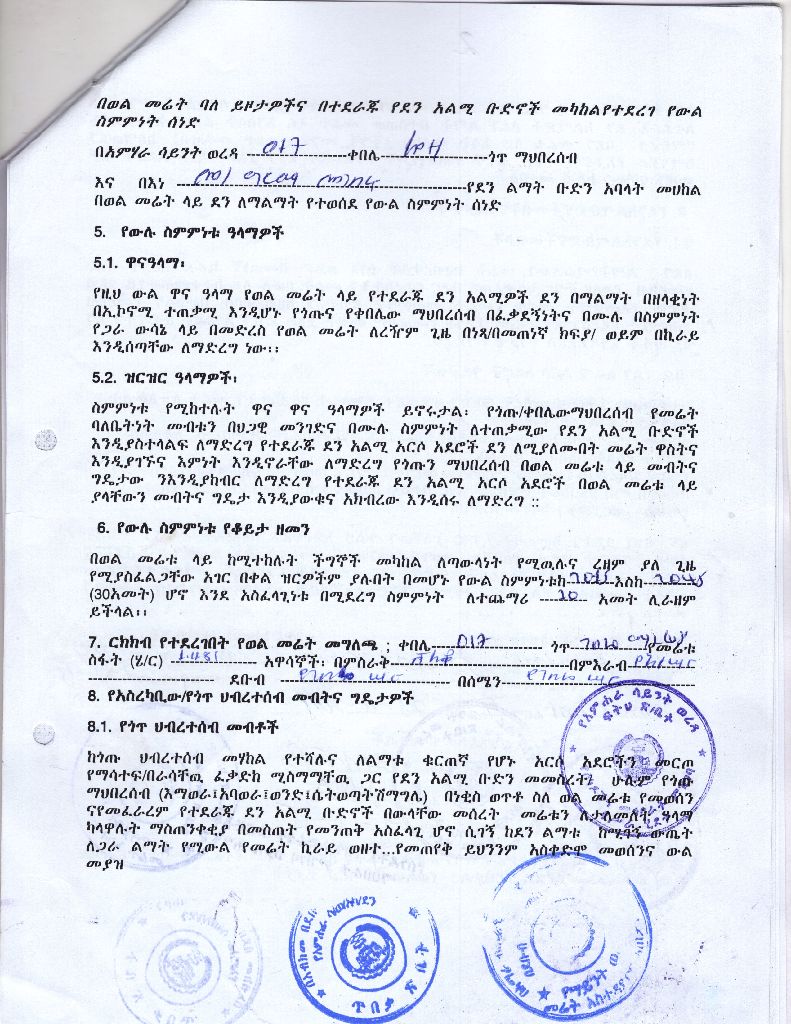 በወል መሬት ባለ ይዞታዎችና በተደራጁ የደን አልሚ ቡድኖች መካከልየተደረገ የውል
ስምምነት ሰነድ
በአምሃራ ሳይንት ወረዳ 017 ቀበሌ ጎጥ ማህበረሰብ
እና በእነ የደን ልማት ቡድን አባላት መሀከል
በወል መሬት ላይ ደን ለማልማት የተወሰደ የውል ስምምነት ሰነድ
5. የውሉ ስምምነቱ ዓላማዎች
5.1. ዋናዓላማ፡
የዚህ ውል ዋና ዓላማ የወል መሬት ላይ የተደራጁ ደን አልሚዎች ደን በማልማት በዘላቂነት
በኢኮኖሚ ተጠቃሚ እንዲሆኑ የጎጡና የቀበሌው ማህበረሰብ በፈቃደኝነትና በሙሉ በስምምነት
የጋራ ውሳኔ ላይ በመድረስ የወል መሬት ለረዥም ጊዜ በነጻ/በመጠነኛ ክፍያ/ ወይም በኪራይ
እንዲሰጣቸው ለማድረግ ነው፡፡
5.2. ዝርዝር ዓላማዎች፡
ስምምነቱ የሚከተሉት ዋና ዋና ዓላማዎች ይኖሩታል፡ የጎጡ/ቀበሌውማህበረሰብ የመሬት
ባለቤትነት መብቱን በህጋዊ መንገድና በሙሉ ስምምነት ለተጠቃሚው የደን አልሚ ቡድኖች
እንዲያስተላልፍ ለማድረግ የተደራጁ ደን አልሚ አርሶ አደሮች ደን ለሚያለሙበት መሬት ዋስትና
እንዲያገኙና እምነት እንዲኖራቸው ለማድረግ የጎጡን ማህበረሰብ በወል መሬቱ ላይ መብትና
ግዴታው ንእንዲያከብር ለማድረግ የተደራጁ ደን አልሚ አርሶ አደሮች በወል መሬቱ ላይ
ያላቸውን መብትና ግዴታ እንዲያውቁና አክብረው እንዲሰሩ ለማድረግ ::
6. የውሉ ስምምነቱ የቆይታ ዘመን
በወል መሬቱ ላይ ከሚተከሉት ችግኞች መካከል ለጣውላነት የሚዉሉና ረዘም ያለ ጊዜ
የሚያስፈልጋቸው አገር በቀል ዝርዎችም ያሉበት በመሆኑ የውል ስምምነቱከ እስከ
(30አመት) ሆኖ እንደ አስፈላጊነቱ በሚደረግ ስምምነት ለተጨማሪ 20 አመት ሊራዘም
ይችላል፡፡
7. ርክክብ የተደረገበት የወል መሬት መግለጫ ; ቀበሌ 017 ጎጥ የመሬቱ
ስፋት (ሄ/ር) አዋሳኞች፡ በምስራቅ በምእራብ
ደቡብ በሰሜን
8. የአስረካቢው/የጎጥ ህብረተሰብ መብትና ግዴታዎች
8.1. የጎጥ ህብረተሰብ መብቶች
ከጎጡ ህብረተሰብ መሃከል የተሻሉና ለልማቱ ቁርጠኛ የሆኑ አርሶ አደሮችን መርጦ
የማሳተፍ/በራሳቸዉ ፈቃድከ ሚስማማቸዉ ጋር የደን አልሚ ቡድን መመስረት፤ ሁሉም የጎጡ
ማህበረሰብ (እማወራ፤አባወራ፤ወንድ፤ሴትወጣትሽማግሌ) በነቂስ ወጥቶ ስለ ወል መሬቱ የመወሰን
ናየመፈራረም የተደራጁ ደን አልሚ ቡድኖች በውላቸው መሰረት መሬቱን ለታለመለት ዓላማ
ካላዋሉት ማስጠንቀቂያ በመስጠት የመንጠቅ አስፈላጊ ሆኖ ሲገኝ ከደን ልማቱ ከሚገኝ ውጤት
ለጋራ ልማት የሚውል የመሬት ኪራይ ወዘተ...የመጠየቅ ይህንንም አስቀድሞ መወሰንና ውል
መያዝ
የአምሐራ ሳይንት ወረዳ
ፍትህ ጽ/ቤት
ጥበቃ